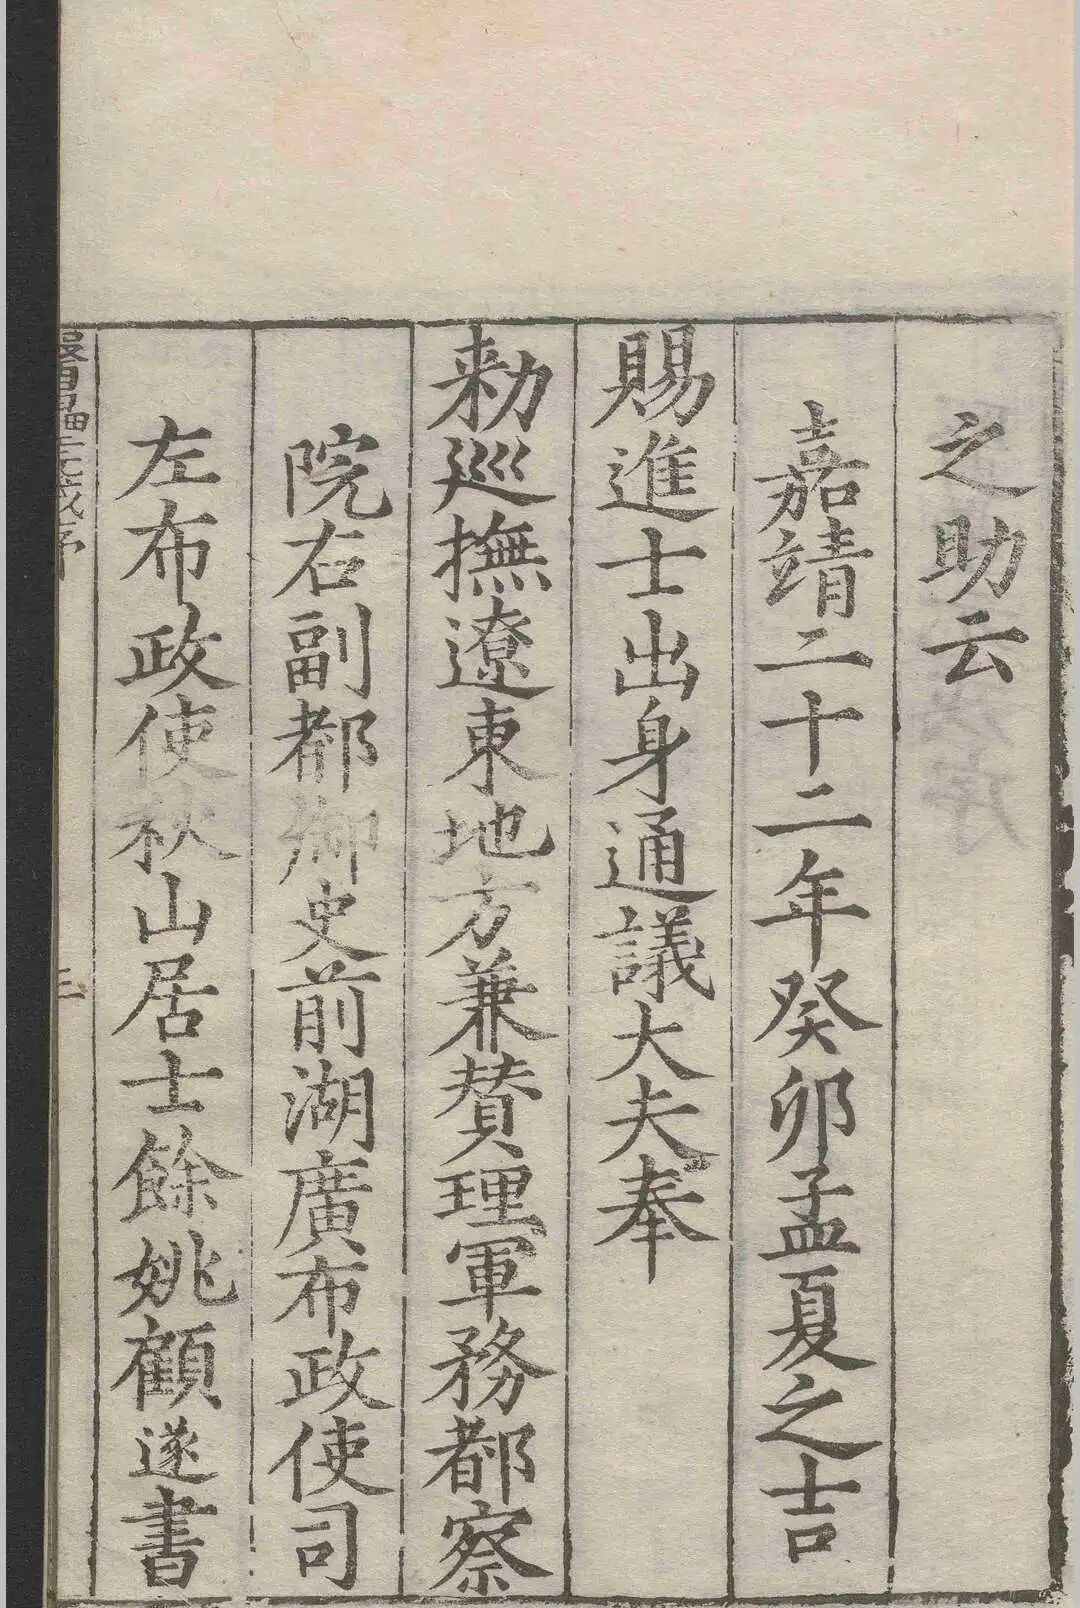 之助云
嘉靖二十二年癸卯孟夏之吉
賜進士出身通議大夫奉
勑巡撫遼東地方兼賛理軍務都察
院右副都御史前湖廣布政使司
左布政使秋山居士餘姚顧遂書